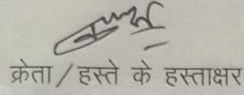 क्रेता / हस्ते के हस्ताक्षर